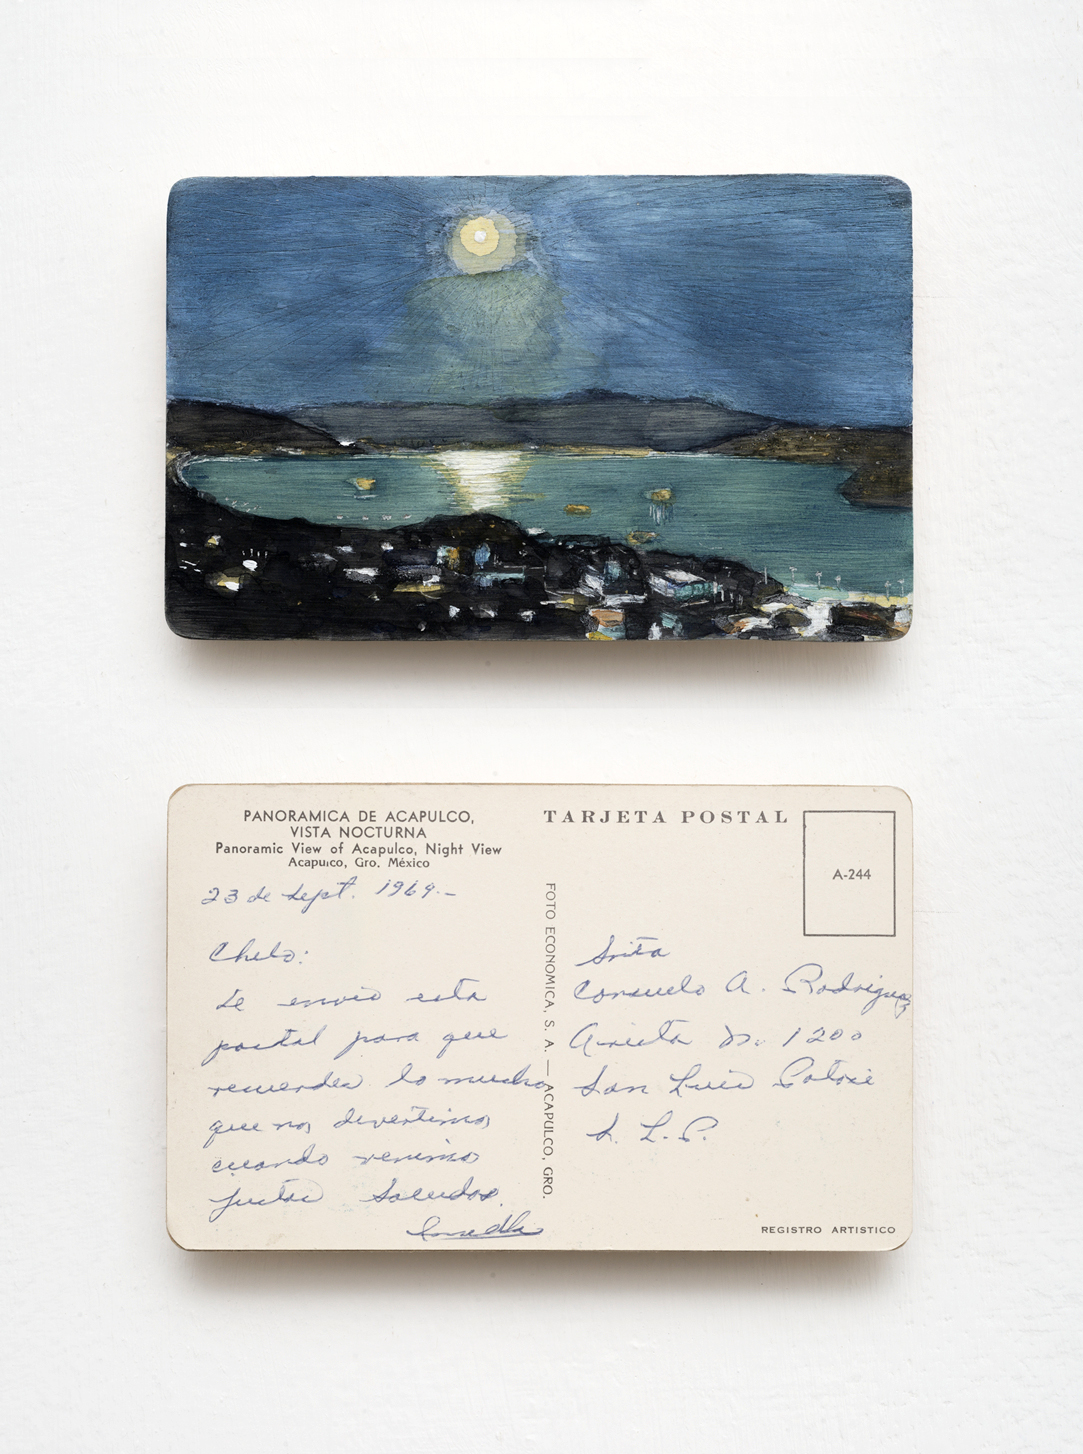 PANORAMICA DE ACAPULCO,
VISTA NOCTURNA
Panoramic View of Acapulco, Night View
Acapulco, Gro. México
23 de sept. 1969.-
Chelo:
Te envio esta
postal para que
recuerdes lo mucho
que nos divertimos
cuando venimos
juntas Saludos.
TARJETA POSTAL
A-244
FOTO ECONOMICA, S. A. — ACAPULCO, GRO.
Srita
Consuelo A. Rodriguez
Arista No. 1200
San Luis Potosi
S. L. P.
REGISTRO ARTISTICO